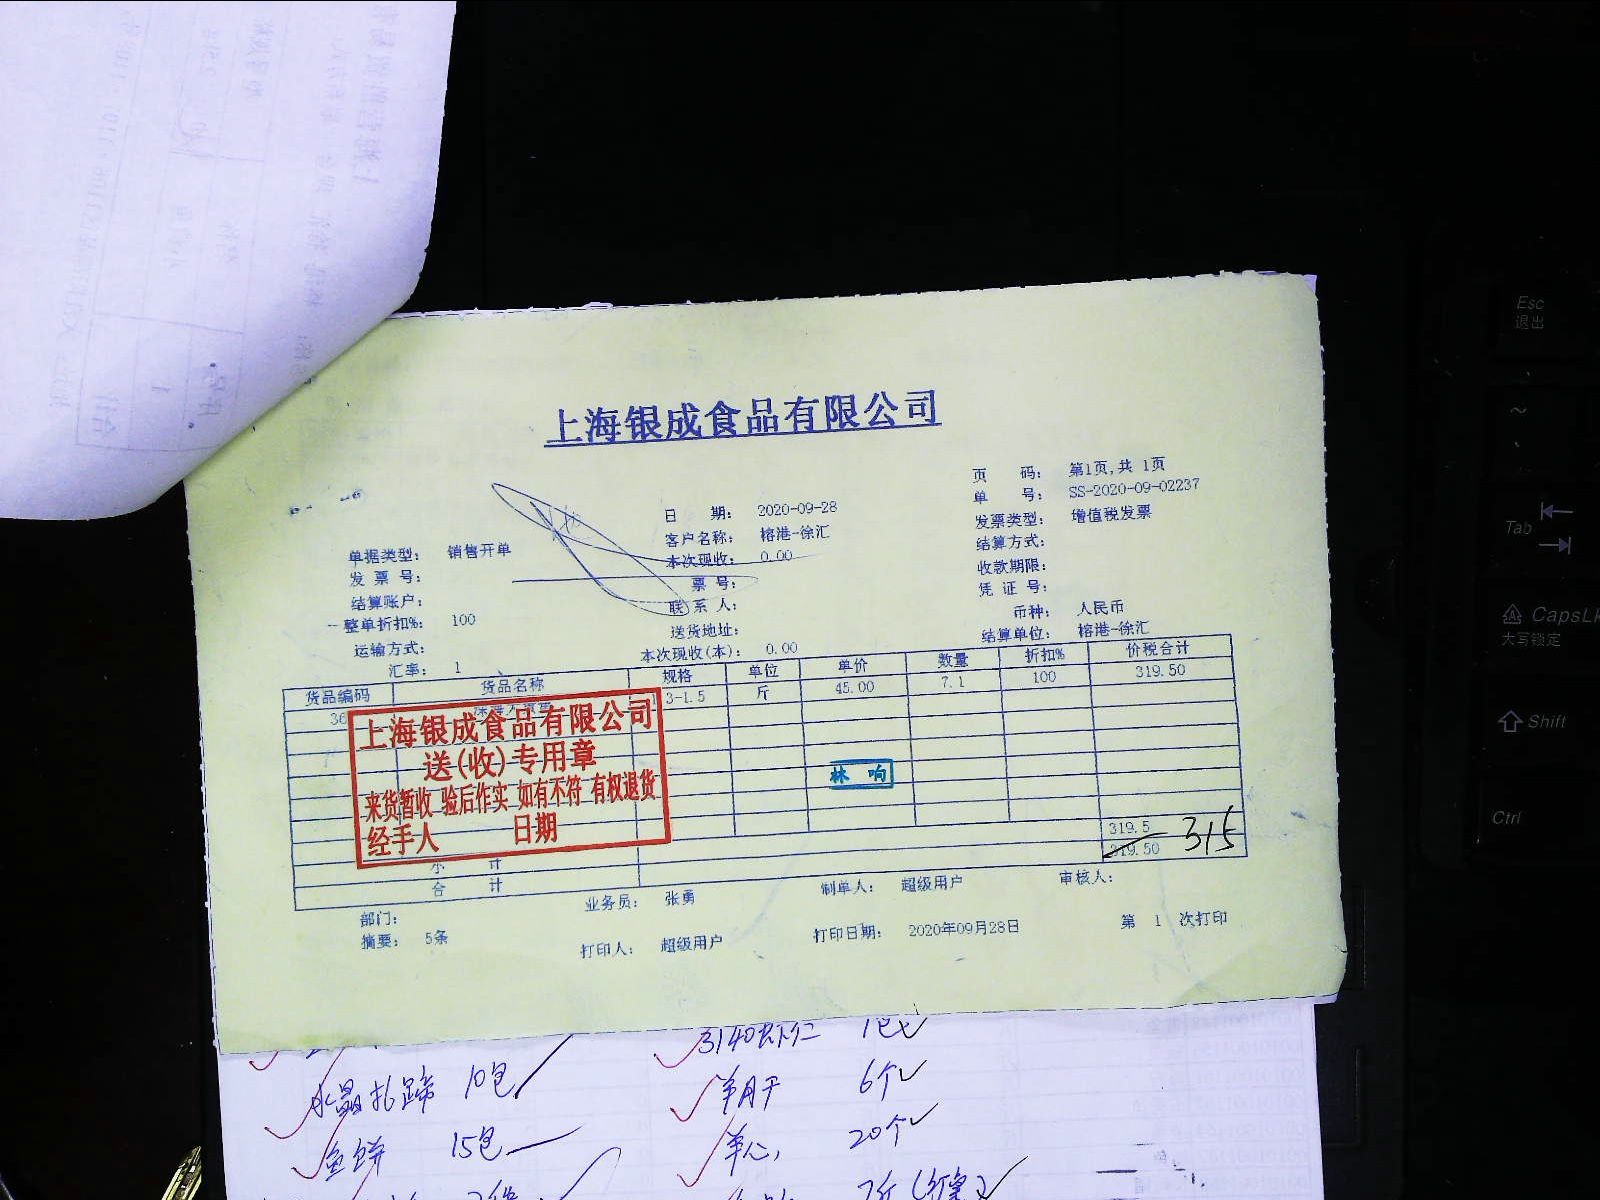 上海银成食品有限公司
页 码: 第1页,共 1页
单 号: SS-2020-09-02237
日 期: 2020-09-28
发票类型: 增值税发票
单据类型: 销售开单
客户名称: 榕港-徐汇
结算方式:
发 票 号:
本次现收: 0.00
收款期限:
结算账户:
票 号:
凭 证 号:
整单折扣%: 100
联 系 人:
币种: 人民币
运输方式:
送货地址:
结算单位: 榕港-徐汇
汇率: 1
本次现收(本): 0.00
货品编码 货品名称 规格 单位 单价 数量 折扣% 价税合计
36 3-1.5 斤 45.00 7.1 100 319.50
上海银成食品有限公司
送(收)专用章
来货暂收 验后作实 如有不符 有权退货
经手人 日期
林 响
小 计 319.5
合 计 319.50 315
部门: 业务员: 张勇 制单人: 超级用户 审核人:
摘要: 5条 打印人: 超级用户 打印日期: 2020年09月28日 第 1 次打印
3140虾仁 1包
水晶扎蹄 10包 羊肝 6个
鱼饼 15包 羊心 20个
Esc
退出
~
Tab
CapsLk
大写锁定
Shift
Ctrl